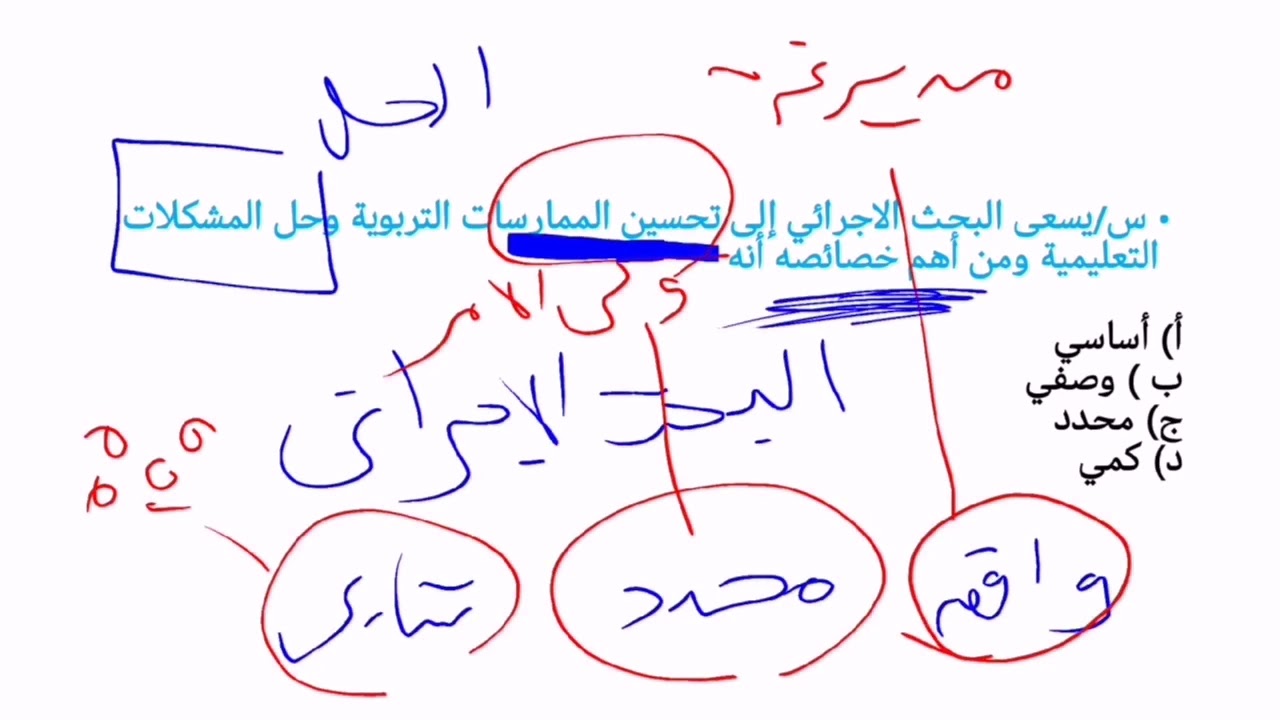 الحل
• س/يسعى البحث الاجرائي إلى تحسين الممارسات التربوية وحل المشكلات
التعليمية ومن أهم خصائصه أنه
أ) أساسي
ب ) وصفي
ج) محدد
د) كمي
البحث الاجرائي
محدد